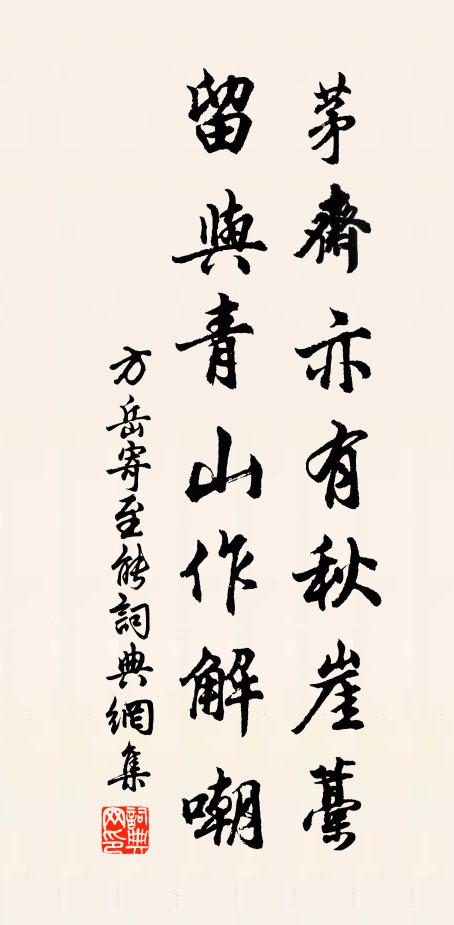 茅齋亦有秋崖藁
留與青山作解嘲
方岳寄至能詞典網集
詞典網印